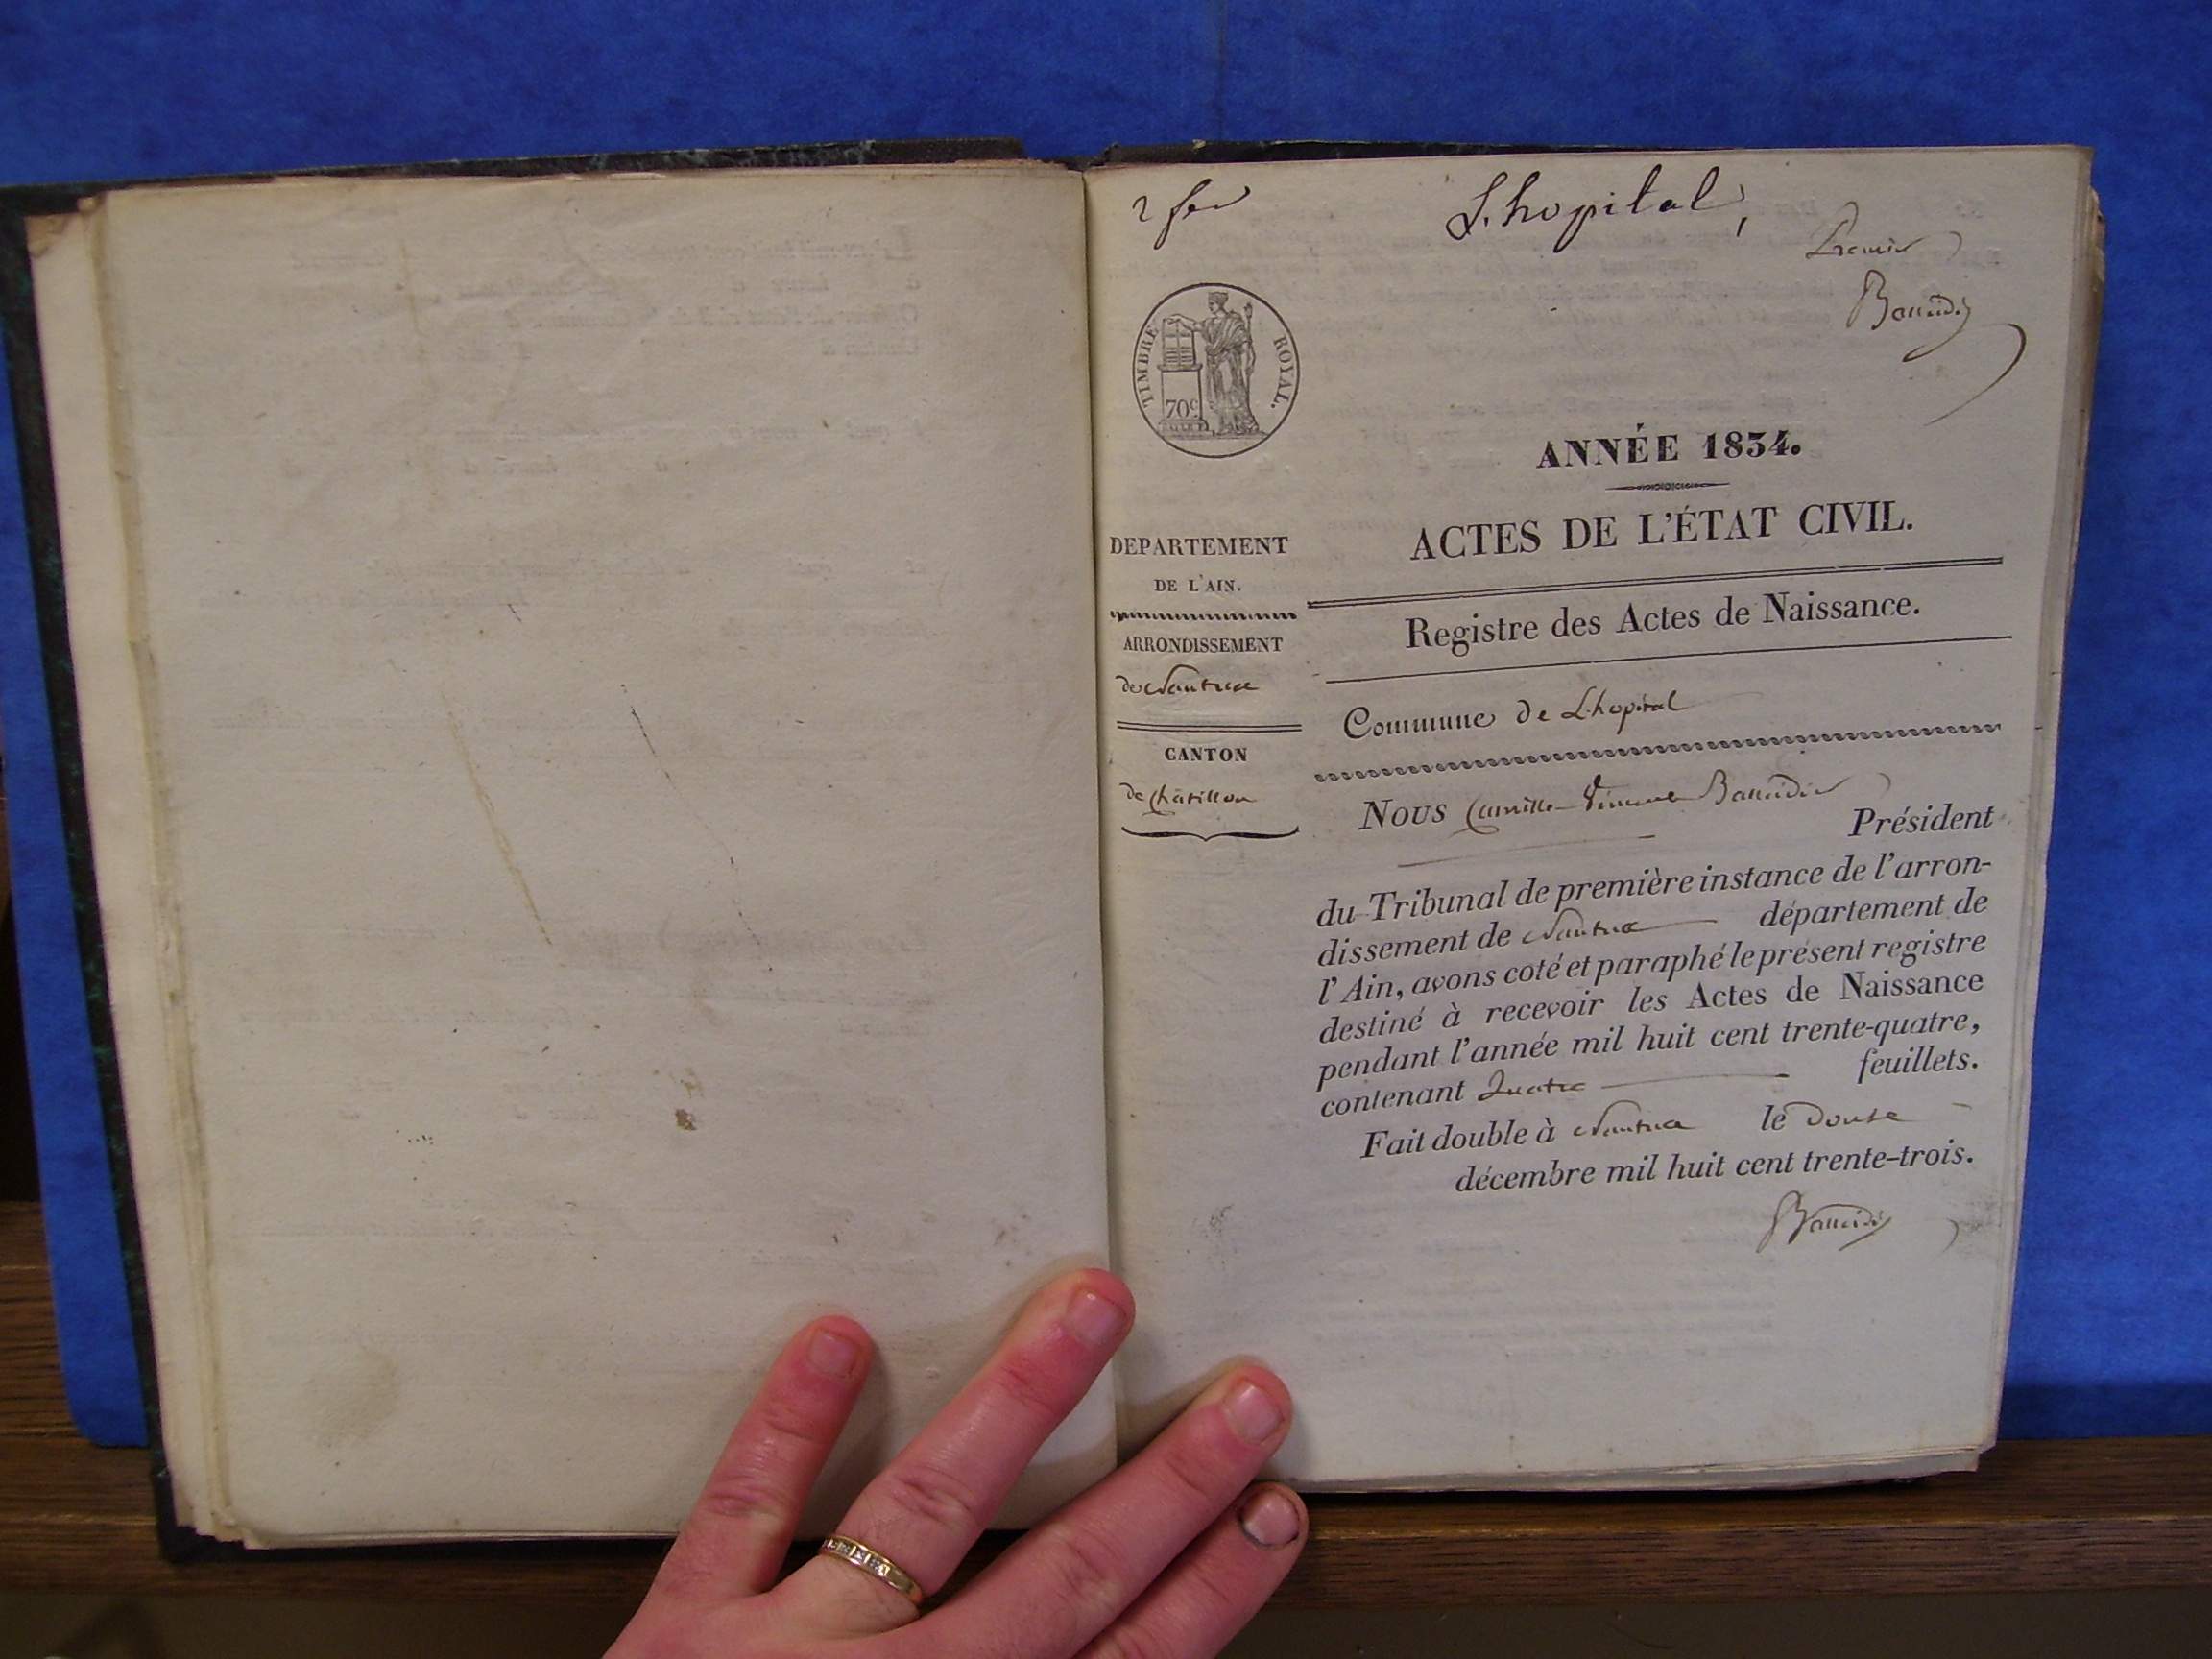 2 feu
L'hopital,
Premier
TIMBRE ROYAL.
70c
ANNÉE 1834.
ACTES DE L'ÉTAT CIVIL.
DEPARTEMENT
DE L'AIN.
ARRONDISSEMENT
de Nantua
CANTON
de Châtillon
Registre des Actes de Naissance.
Commune de L'hopital
Nous Camille
Président
du Tribunal de première instance de l'arron-
dissement de Nantua département de
l'Ain, avons coté et paraphé le présent registre
destiné à recevoir les Actes de Naissance
pendant l'année mil huit cent trente-quatre,
contenant Quatre feuillets.
Fait double à Nantua le douse
décembre mil huit cent trente-trois.